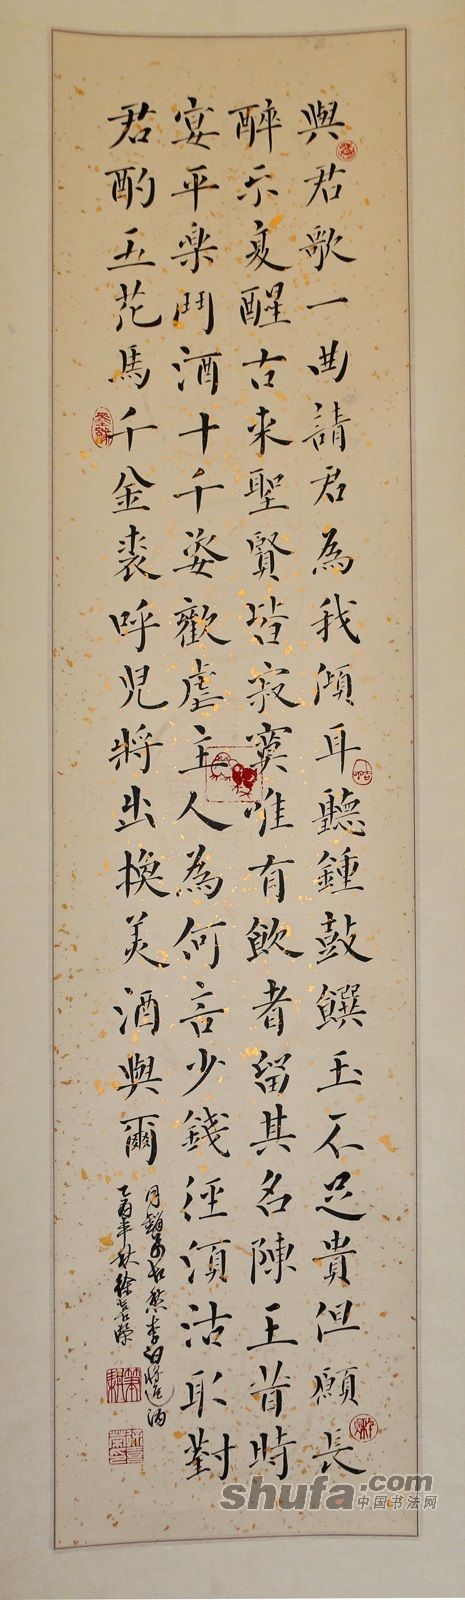 與君歌一曲請君為我傾耳聽鍾鼓饌玉不足貴但願長
醉不复醒古来聖賢皆寂寞唯有飲者留其名陳王昔時
宴平楽鬥酒十千姿歡虐主人為何言少錢徑須沽取對
君酌五花馬千金裘呼児將出換美酒與爾
同銷萬古愁李白將進酒
乙酉年秋徐喜荣
shufa.com
中国书法网